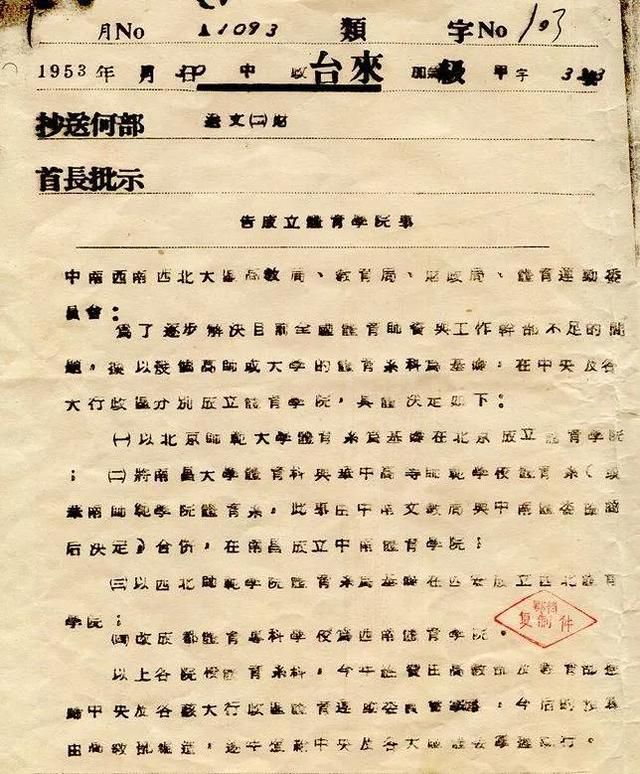 月No ▲1093 類 字No 103
1953年 月 中 收 台來 加 級 甲字
抄送何部 送文㈡財
首長批示
告成立體育學院事
中南西南西北大區高教局、教育局、財政局、體育運動委
員會：
爲了逐步解決目前全國體育師資與工作幹部不足的問
題，擬以幾個高師或大學的體育系科爲基礎，在中央及各
大行政區分別成立體育學院，具體決定如下：
㈠以北京師範大學體育系爲基礎在北京成立體育學院
；㈡將南昌大學體育科與華中高等師範學校體育系（或
華南師範學院體育系，此事由中南文教局與中南體委協商
后決定）合併，在南昌成立中南體育學院；
㈢以西北師範學院體育系爲基礎在西安成立西北體育
學院；
㈣改成都體育專科學校爲西南體育學院。
以上各院校體育系科，今年經費由高教部及教育部
中央及各該大行政區體育運動委員會，今后的預算
由高教部，中央及各大區體委
鄂档
复制件